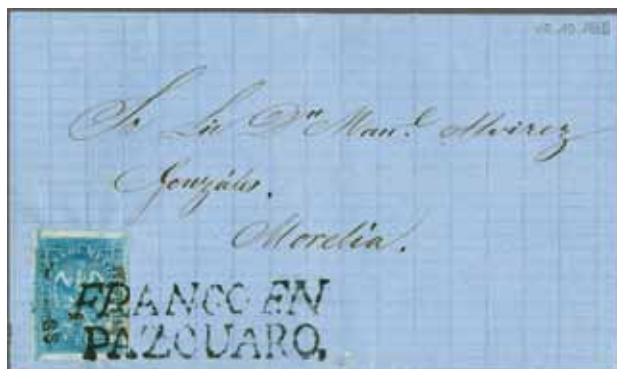 Sr Lic Dn Manl. Alvirez
Gonzáles.
Morelia.
FRANCO EN
PAZCUARO.